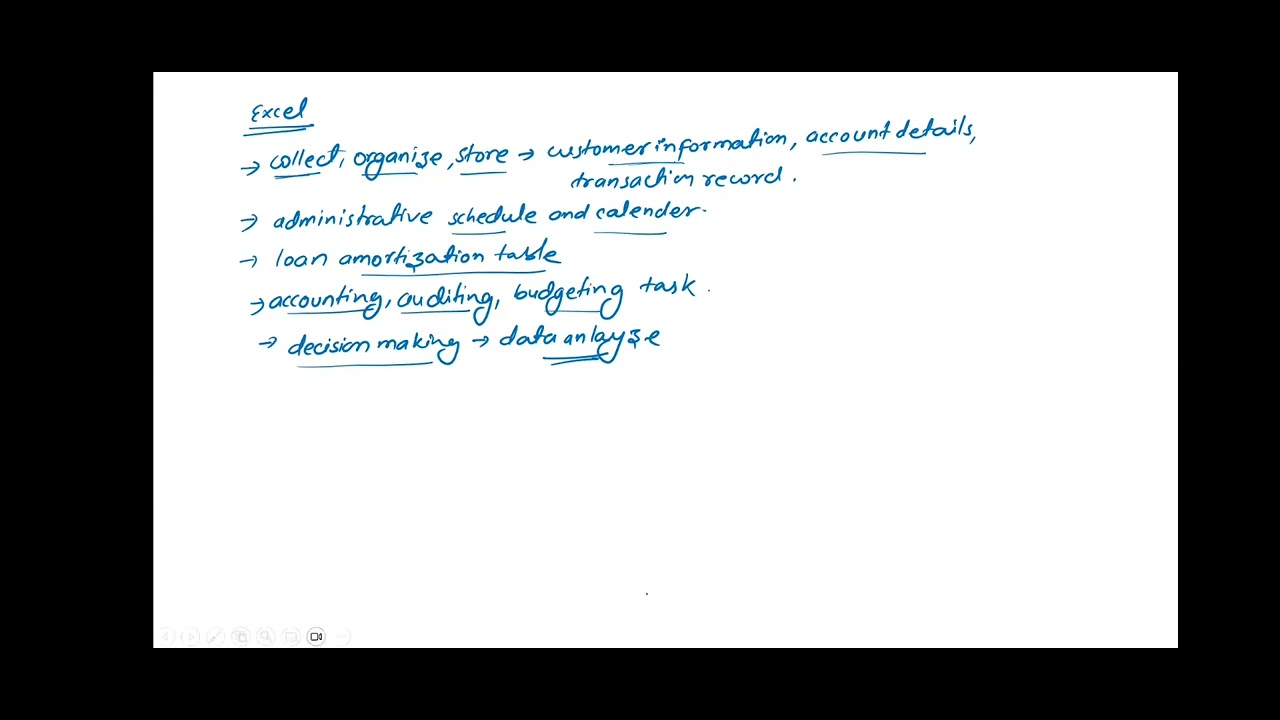 Excel
→ collect, organize, store → customer information, account details,
transaction record.
→ administrative schedule and calender.
→ loan amortization table
→ accounting, auditing, budgeting task.
→ decision making → data anlayze